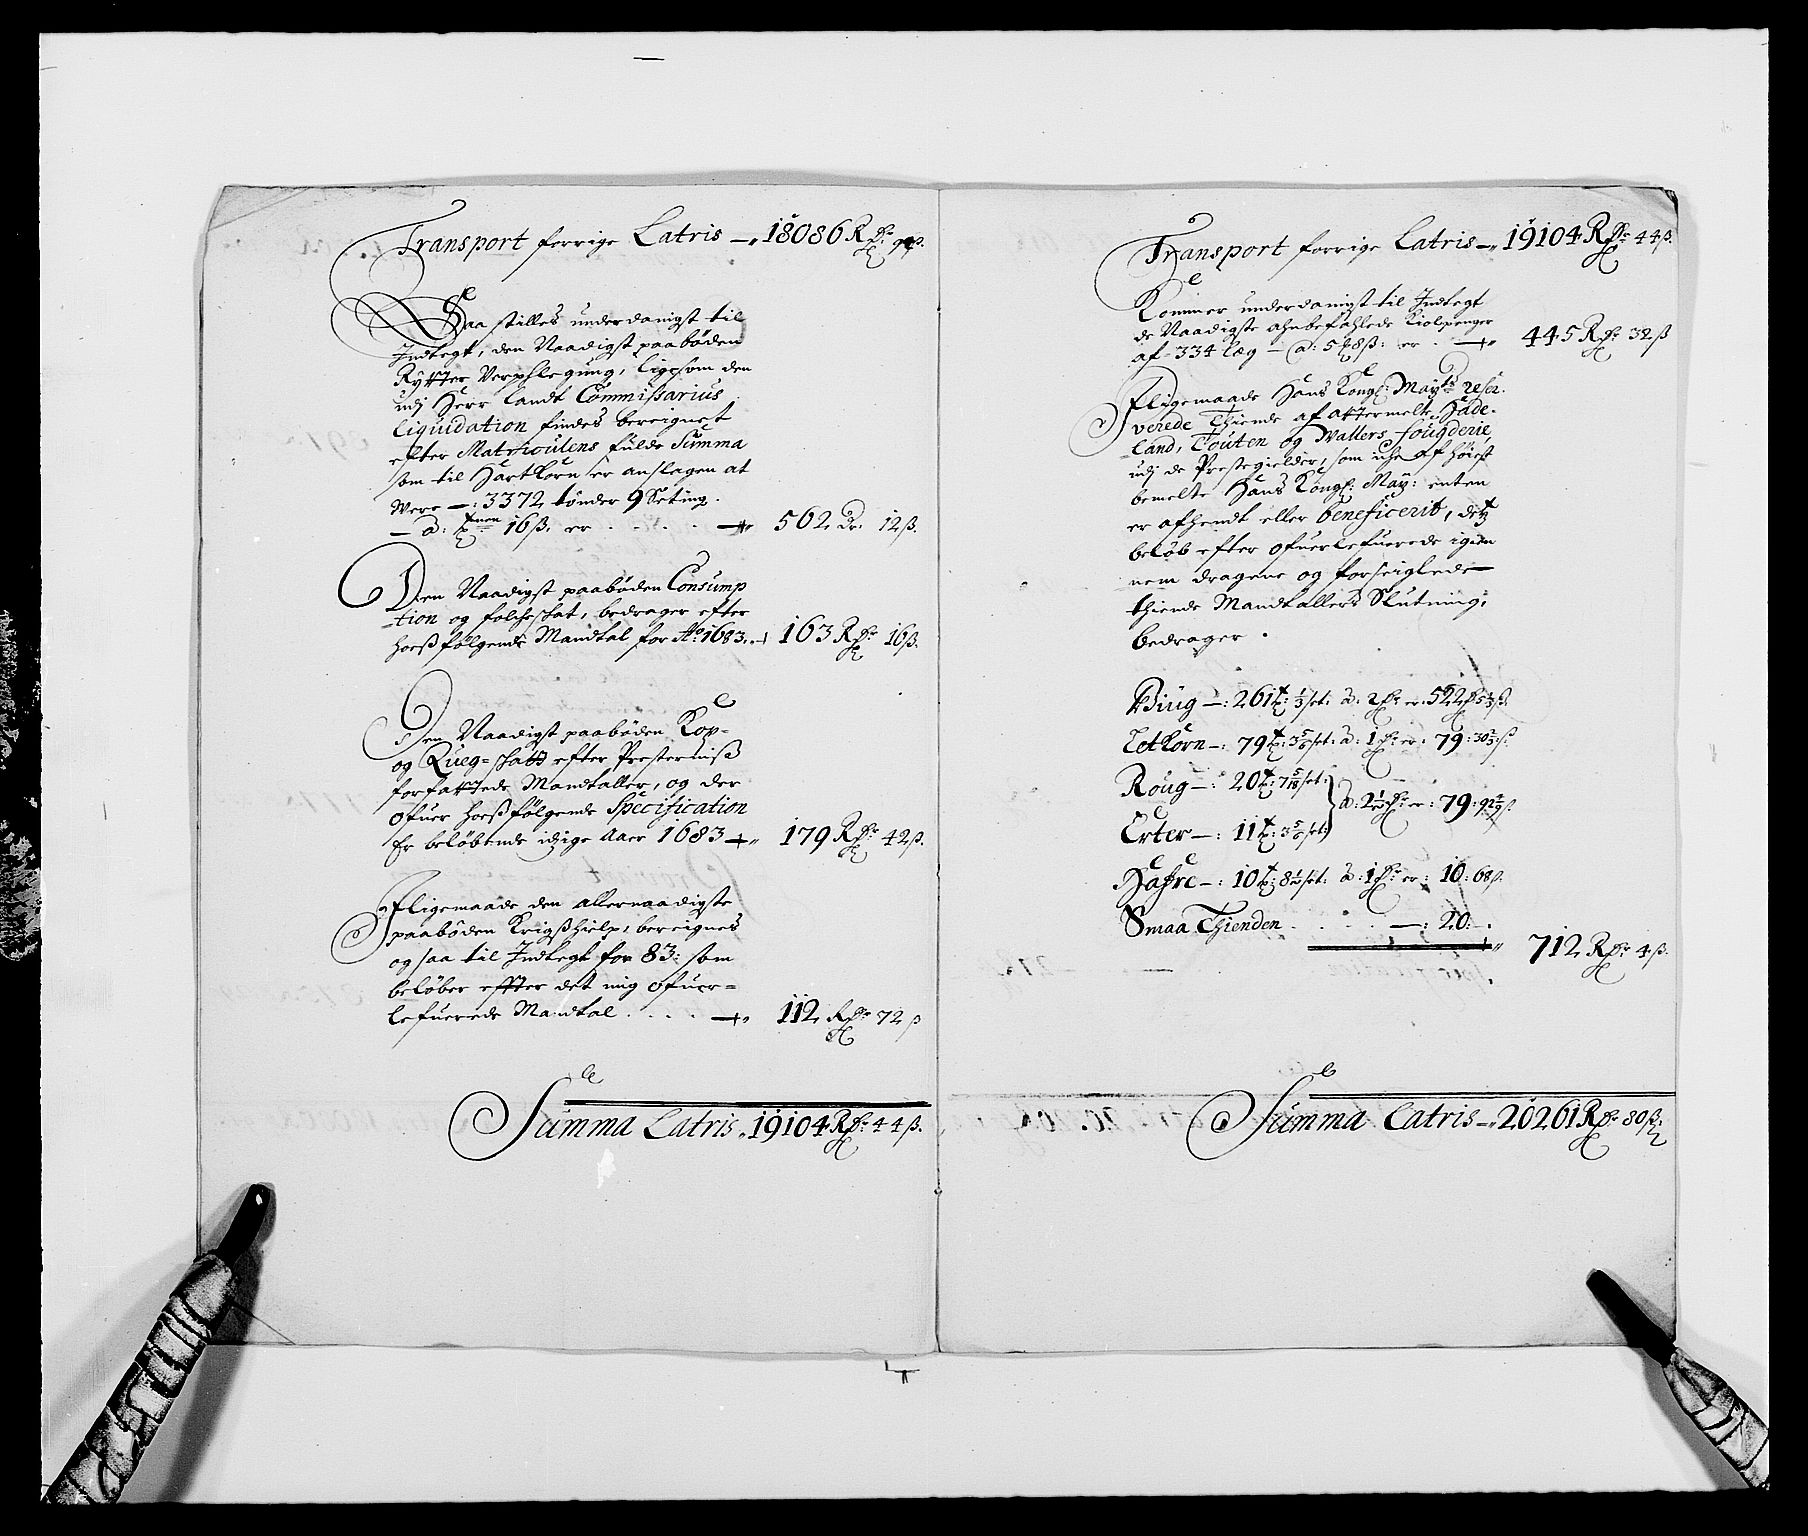 Transport forrige Latris —" 18086 Rdr 94 ß.
Saa stilles underdanigst til
Indtegt, den Naadigst paabøden
Rytter Verphlegung, ligesom den
udj Herr Landt Commissarius
Liquidation findes bereignet
efter Matriculens fulde Summa
som til Hartkorn er anslagen at
Were —: 3372 tønder 9 Seting.
— a: tnen 16 ß. er . . . . —" 562 Dr. 12 ß.
Den Naadigst paabøden Consump
-tion og folcheschat, bedrager efter
hosßfølgende Mandtal for Ao: 1683.— 163 Rdr 16 ß.
Den Naadigst paabøden Kop-
og Queg-schatt efter Presternis
forfattede Mandtaller, og der
ofuer hosßfølgende Specification
Er beløbende idige Aaer 1683 —" 179 Rdr 42 ß.
Jfligemaade den allernaadigste
paabøden Krigßhielp, bereignes
og saa til Indtegt for 83: som
beløber effter det mig ofuer-
lefuerede Mandtal . . . . —" 112 Rdr 72 ß
Summa Latris " 19104 Rdr 44 ß.
Transport forrige Latris —" 19104 Rdr 44 ß.
Kommer underdanigst til Indtegt
de Naadigste ahnbefahlede Kiolpenger
af 334 læg — a: 5 8 ß: er . —" 445 Rdr 32 ß
Jfligemaade Hans Kongl: Mayts reser-
verede Thiende af attermelte Hade-
land, Touten og Wallers fougderie,
udj de Prestegielder, som iche af høist
bemelte Hans Kongl: May: enten
er afhendt eller beneficerit, dets
beløb efter ofuerlefuerede igien
nem dragene og forseiglede
thiende Mandtallers Slutning,
bedrager .
Biug —: 261 t: 1/3 set: a: 2 dr er: 522 5 1/3 ß.
Letkorn —: 79 t: 3 5/6 set: a: 1 dr er: 79: 30 2/3 ß.
Roug —: 20 t: 7 5/18 set:
a: 2 1/2 dr er: 79: 92 4/9 ß
Erter —: 11 t: 3 5/6 set:
Hafre —: 10 t: 8 1/2 set: a: 1 dr er: 10: 68 ß.
Smaa Thienden . . . . —: 20: —.
712 Rdr 4 ß.
Summa Latris —" 20261 Rdr 80 ß.